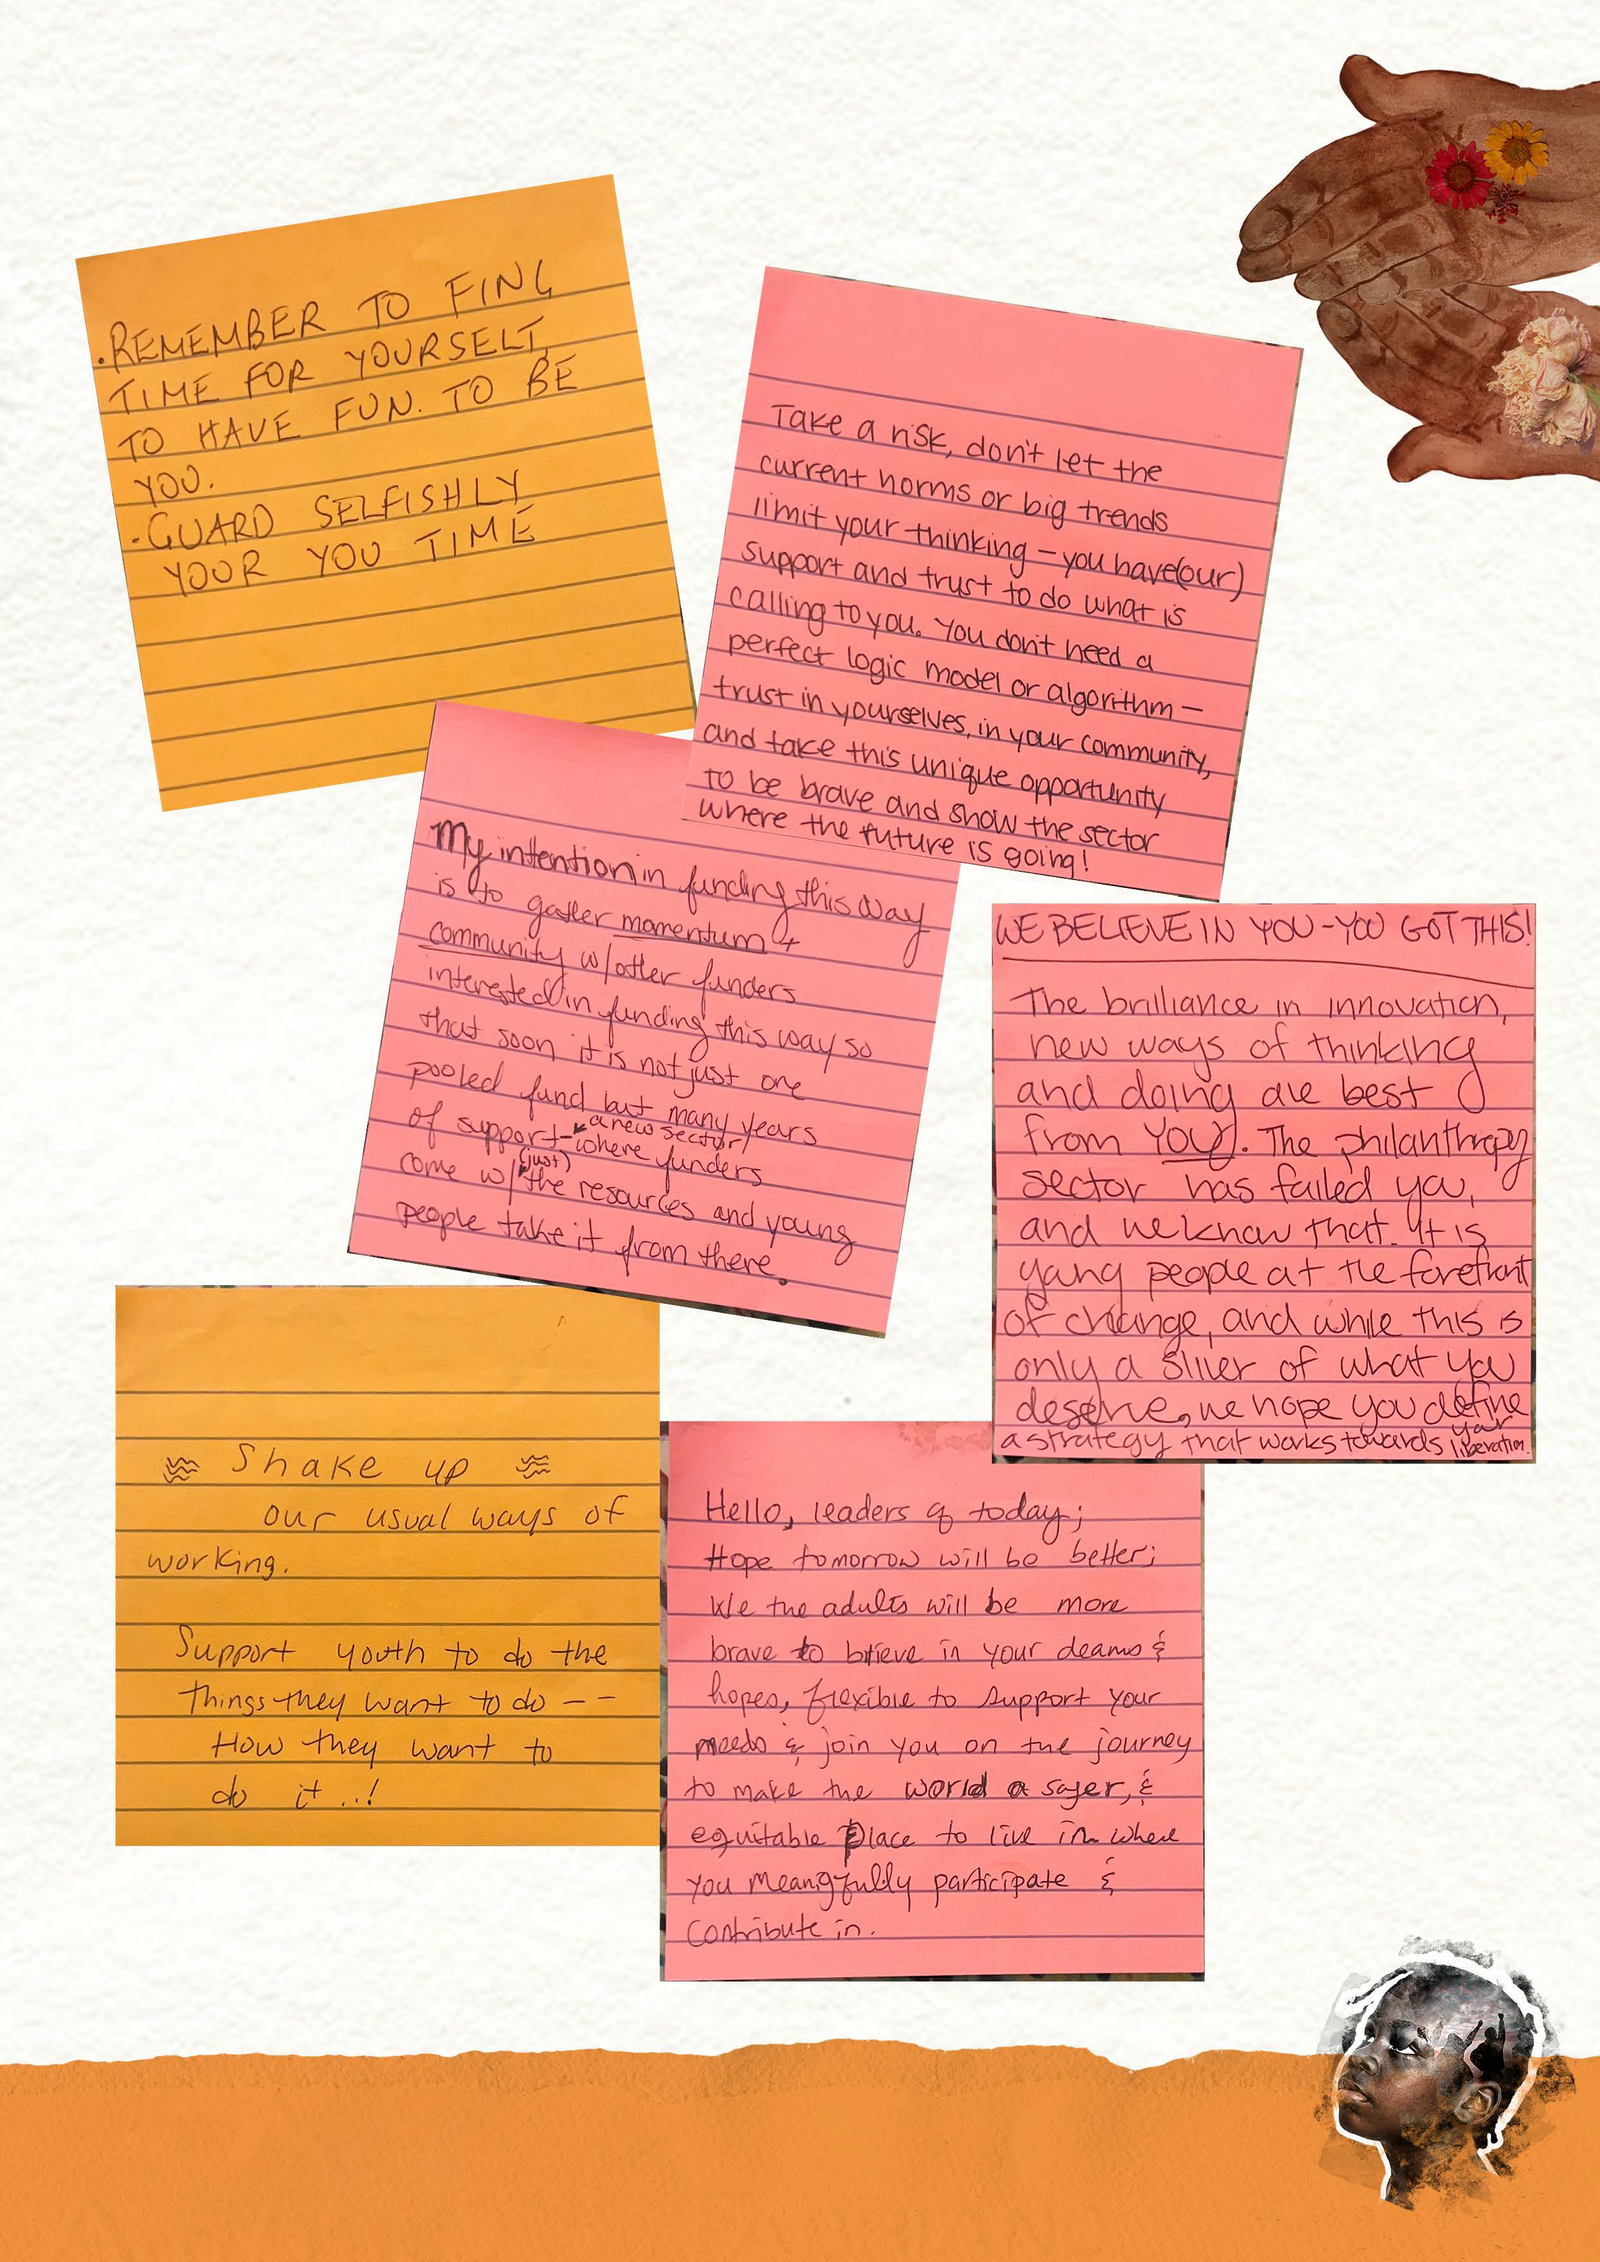 ·REMEMBER TO FIND
TIME FOR YOURSELF
TO HAVE FUN. TO BE
YOU.
·GUARD SELFISHLY
YOUR YOU TIME
Take a risk, don't let the
current norms or big trends
limit your thinking – you have (our)
support and trust to do what is
calling to you. You don't need a
perfect logic model or algorithm –
trust in yourselves, in your community,
and take this unique opportunity
to be brave and show the sector
where the future is going!
My intention in funding this way
is to gather momentum +
community w/other funders
interested in funding this way so
that soon it is not just one
pooled fund but many years
of support – a new sector/ where funders
come w/ (just) the resources and young
people take it from there.
WE BELIEVE IN YOU - YOU GOT THIS!
The brilliance in innovation,
new ways of thinking
and doing are best
from YOU. The philanthropy
sector has failed you,
and we know that. It is
young people at the forefront
of change, and while this is
only a sliver of what you
deserve, we hope you define
a strategy that works towards your liberation.
Shake up
our usual ways of
working.
Support youth to do the
things they want to do --
How they want to
do it..!
Hello, leaders of today;
Hope tomorrow will be better;
We the adults will be more
brave to blieve in your deams &
hopes, flexible to support your
needs & join you on the journey
to make the world a safer, &
equitable place to live in where
you meangfully participate &
contribute in.